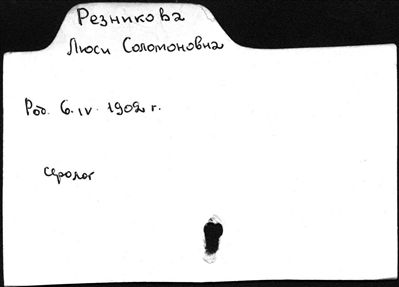 Резникова
Люси Соломоновна
Род. 6. IV. 1902 г.
серолог